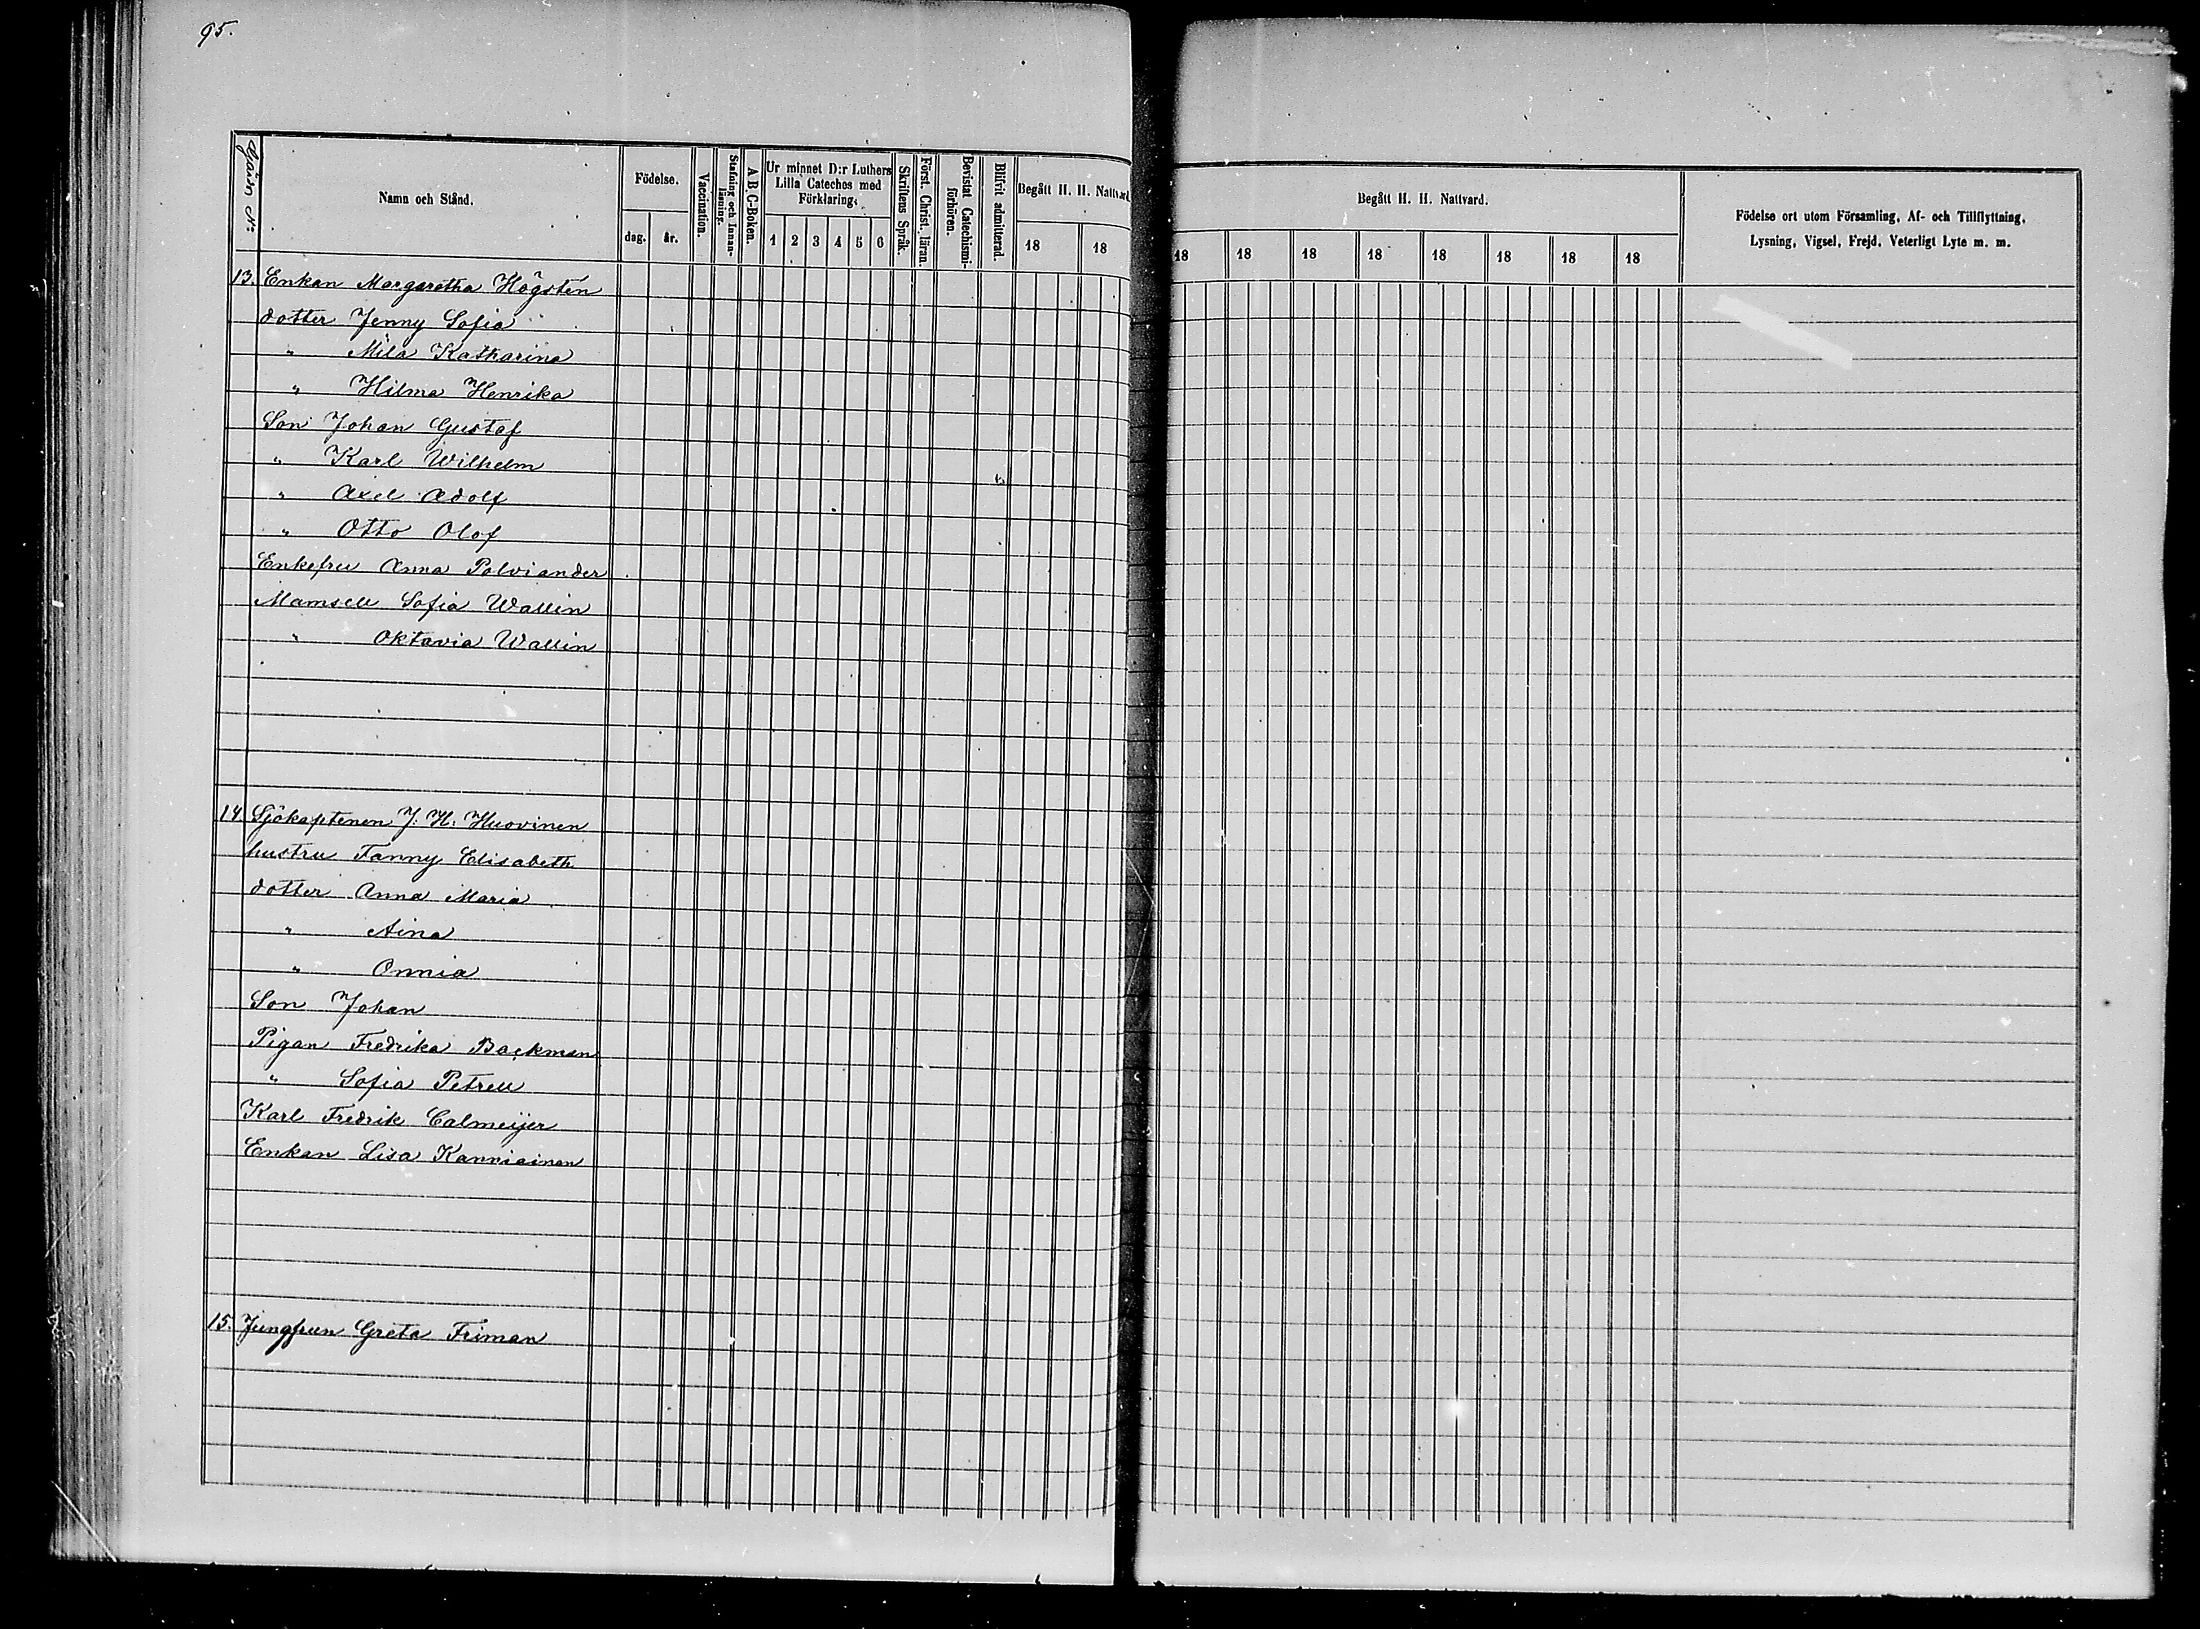 95.
Gården No
Namn och Stånd.
Födelse.
dag.
år.
Vaccination.
Stafning och Innanläsning.
A B C-Boken.
Ur minnet D:r Luthers
Lilla Cateches med
Förklaring.
1 2 3 4 5 6
Skriftens Språk.
Först. Christ. läran.
Bevistat Catechismiförhören.
Blifvit admitterad.
Begått H. H. Nattvard.
18 18
Begått H. H. Nattvard.
18 18 18 18 18 18 18 18
Födelse ort utom Församling, Af- och Tillflyttning,
Lysning, Vigsel, Frejd, Veterligt Lyte m. m.
13. Enkan Margaretha Högstén
dotter Jenny Sofia
" Mila Katharina
" Hilma Henrika
Son Johan Gustaf
" Karl Wilhelm
" Axel Adolf
" Otto Olof
Enkefru Anna Polviander
Mamsell Sofia Wallin
" Oktavia Wallin
14. Sjökaptenen J. H. Huovinen
hustru Fanny Elisabeth
dotter Anna Maria
" Aina
" Onnia
Son Johan
Pigan Fredrika Backman
" Sofia Petrell
Karl Fredrik Calmeijer
Enkan Lisa Kanniainen
15. Jungfrun Greta Friman